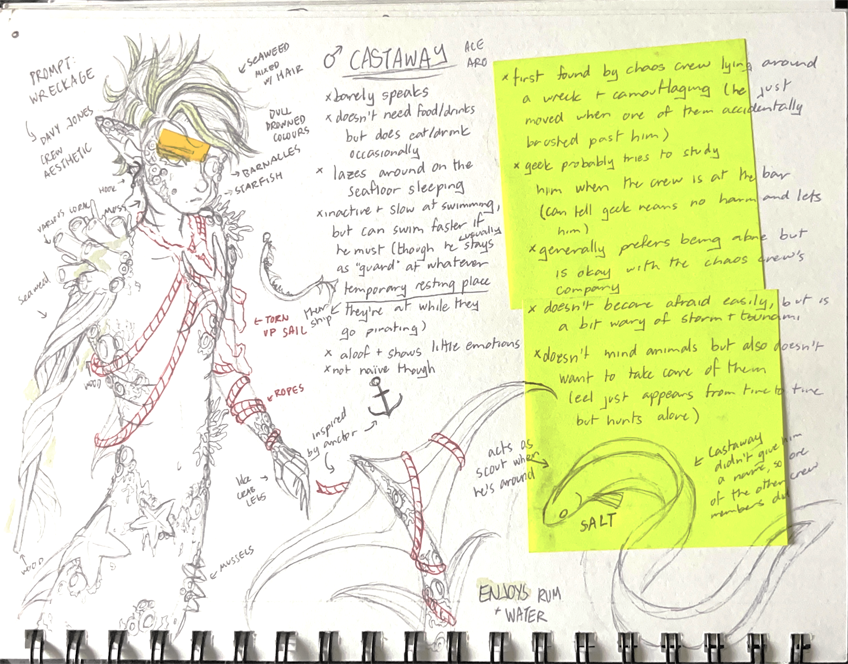 PROMPT:
WRECKAGE
DAVY JONES
CREW
AESTHETIC
SEAWEED
MIXED
W/ HAIR
DULL
DROWNED
COLOURS
BARNACLES
STARFISH
HOOK
MOSS
VARIOUS CORAL
Seaweed
WOOD
WOOD
♂ CASTAWAY
ACE
ARO
x barely speaks
x doesn't need food/drinks
but does eat/drink
occasionally
x lazes around on the
seafloor sleeping
x inactive + slow at swimming,
but can swim faster if
he must (though he usually stays
as "guard" at whatever
temporary resting place
their ship
they're at while they
go pirating)
x aloof + shows little emotions
x not naïve though
TORN
UP SAIL
ROPES
inspired
by anchor
like
crab
legs
MUSSELS
acts as
scout when
he's around
ENJOYS RUM
+ WATER
x first found by chaos crew lying around
a wreck + camouflaging (he just
moved when one of them accidentally
brushed past him)
x geek probably tries to study
him when the crew is at the bar
(can tell geek means no harm and lets
him)
x generally prefers being alone but
is okay with the chaos crew's
company
x doesn't become afraid easily, but is
a bit wary of storm + tsunami
x doesn't mind animals but also doesn't
want to take care of them
(eel just appears from time to time
but hunts alone)
Castaway
didn't give him
a name, so one
of the other crew
members did
SALT